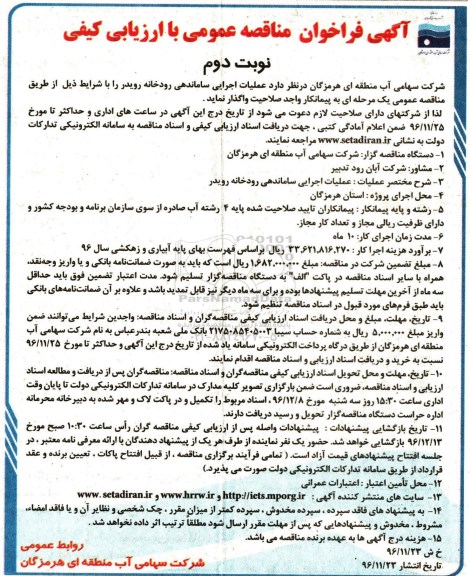 آگهی فراخوان مناقصه عمومی با ارزیابی کیفی
نوبت دوم
شرکت سهامی آب منطقه ای هرمزگان درنظر دارد عملیات اجرایی ساماندهی رودخانه رویدر را با شرایط ذیل از طریق
مناقصه عمومی یک مرحله ای به پیمانکار واجد صلاحیت واگذار نماید .
لذا از شرکتهای دارای صلاحیت لازم دعوت می شود از تاریخ درج این آگهی در ساعت های اداری و حداکثر تا مورخ
۹۶/۱۱/۲۵ ضمن اعلام آمادگی کتبی ، جهت دریافت اسناد ارزیابی کیفی و اسناد مناقصه به سامانه الکترونیکی تدارکات
دولت به نشانی www.setadiran.ir مراجعه نمایند.
۱- دستگاه مناقصه گزار: شرکت سهامی آب منطقه ای هرمزگان
۲- مشاور: شرکت آبان رود تدبیر
۳- شرح مختصر عملیات : عملیات اجرایی ساماندهی رودخانه رویدر
۴- محل اجرای پروژه : استان هرمزگان
۵- رشته و پایه پیمانکار : پیمانکاران تایید صلاحیت شده پایه ۴ رشته آب صادره از سوی سازمان برنامه و بودجه کشور و
دارای ظرفیت ریالی مجاز و تعداد کار مجاز.
۶- مدت زمان اجرای کار: ۱۰ ماه
۷- برآورد هزینه اجرا کار : ۳۳,۶۲۱,۸۱۶,۲۷۰ ریال براساس فهرست بهای پایه آبیاری و زهکشی سال ۹۶
۸- مبلغ تضمین شرکت در مناقصه: مبلغ ۱,۶۸۲,۰۰۰,۰۰۰ ریال است که باید به صورت ضمانت‌نامه بانکی و یا واریز وجه‌نقد،
همراه با سایر اسناد مناقصه در پاکت "الف" به دستگاه مناقصه‌گزار تسلیم شود. مدت اعتبار تضمین فوق باید حداقل
سه ماه از آخرین مهلت تسلیم پیشنهادها بوده و برای سه ماه دیگر نیز قابل تمدید باشد و علاوه بر آن ضمانت‌نامه‌های بانکی
باید طبق فرم‌های مورد قبول در اسناد مناقصه تنظیم شود.
۹- تاریخ، مهلت، مبلغ و محل دریافت اسناد ارزیابی کیفی مناقصه‌گران و اسناد مناقصه: واجدین شرایط می‌توانند ضمن
واریز مبلغ ۵,۰۰۰,۰۰۰ ریال به شماره حساب سیبا ۲۱۷۵۰۸۵۴۰۵۰۰۳ بانک ملی شعبه بندرعباس به نام شرکت سهامی آب
منطقه ای هرمزگان از طریق درگاه پرداخت الکترونیکی سامانه یاد شده از تاریخ درج این آگهی و حداکثر تا مورخ ۹۶/۱۱/۲۵
نسبت به خرید و دریافت اسناد ارزیابی و اسناد مناقصه اقدام نمایند.
۱۰- تاریخ، مهلت و محل تحویل اسناد ارزیابی کیفی مناقصه‌گران و اسناد مناقصه: مناقصه‌گران پس از دریافت و مطالعه اسناد
ارزیابی و اسناد مناقصه، ضروری است ضمن بارگذاری تصویر کلیه مدارک در سامانه تدارکات الکترونیکی دولت تا پایان وقت
اداری ساعت ۱۵:۳۰ روز سه شنبه مورخ ۹۶/۱۲/۸ ، اسناد مربوط را تکمیل و در پاکت لاک و مهر شده به دبیرخانه محرمانه
اداره حراست دستگاه مناقصه‌گزار تحویل و رسید دریافت دارند.
۱۱- تاریخ بازگشایی پیشنهادات : پیشنهادات واصله پس از ارزیابی کیفی مناقصه گران رأس ساعت ۱۰:۳۰ صبح مورخ
۹۶/۱۲/۱۳ بازگشایی خواهد شد. حضور یک نفر نماینده از طرف هر یک از پیشنهاد دهندگان با ارائه معرفی نامه معتبر ، در
جلسه افتتاح پیشنهادهای قیمت آزاد است. ( تمامی فرآیند برگزاری مناقصه ، از قبیل افتتاح پاکات ، تعیین برنده و عقد
قرارداد از طریق سامانه تدارکات الکترونیکی دولت صورت می پذیرد.)
۱۲- محل تأمین اعتبار : اعتبارات عمرانی
۱۳- سایت های منتشر کننده آگهی : http://iets.mporg.ir و www.hrrw.ir و www.setadiran.ir
۱۴- به پیشنهاد های فاقد سپرده ، سپرده مخدوش ، سپرده کمتر از میزان مقرر ، چک شخصی و نظایر آن و یا فاقد امضاء،
مشروط ، مخدوش و پیشنهادهایی که پس از مهلت مقرر ارسال شود مطلقاً ترتیب اثر داده نخواهد شد .
۱۵- هزینه درج آگهی ها به عهده برنده مناقصه می باشد.
خ ش ۹۶/۱۱/۲۳
تاریخ انتشار ۹۶/۱۱/۲۳
روابط عمومی
شرکت سهامی آب منطقه ای هرمزگان